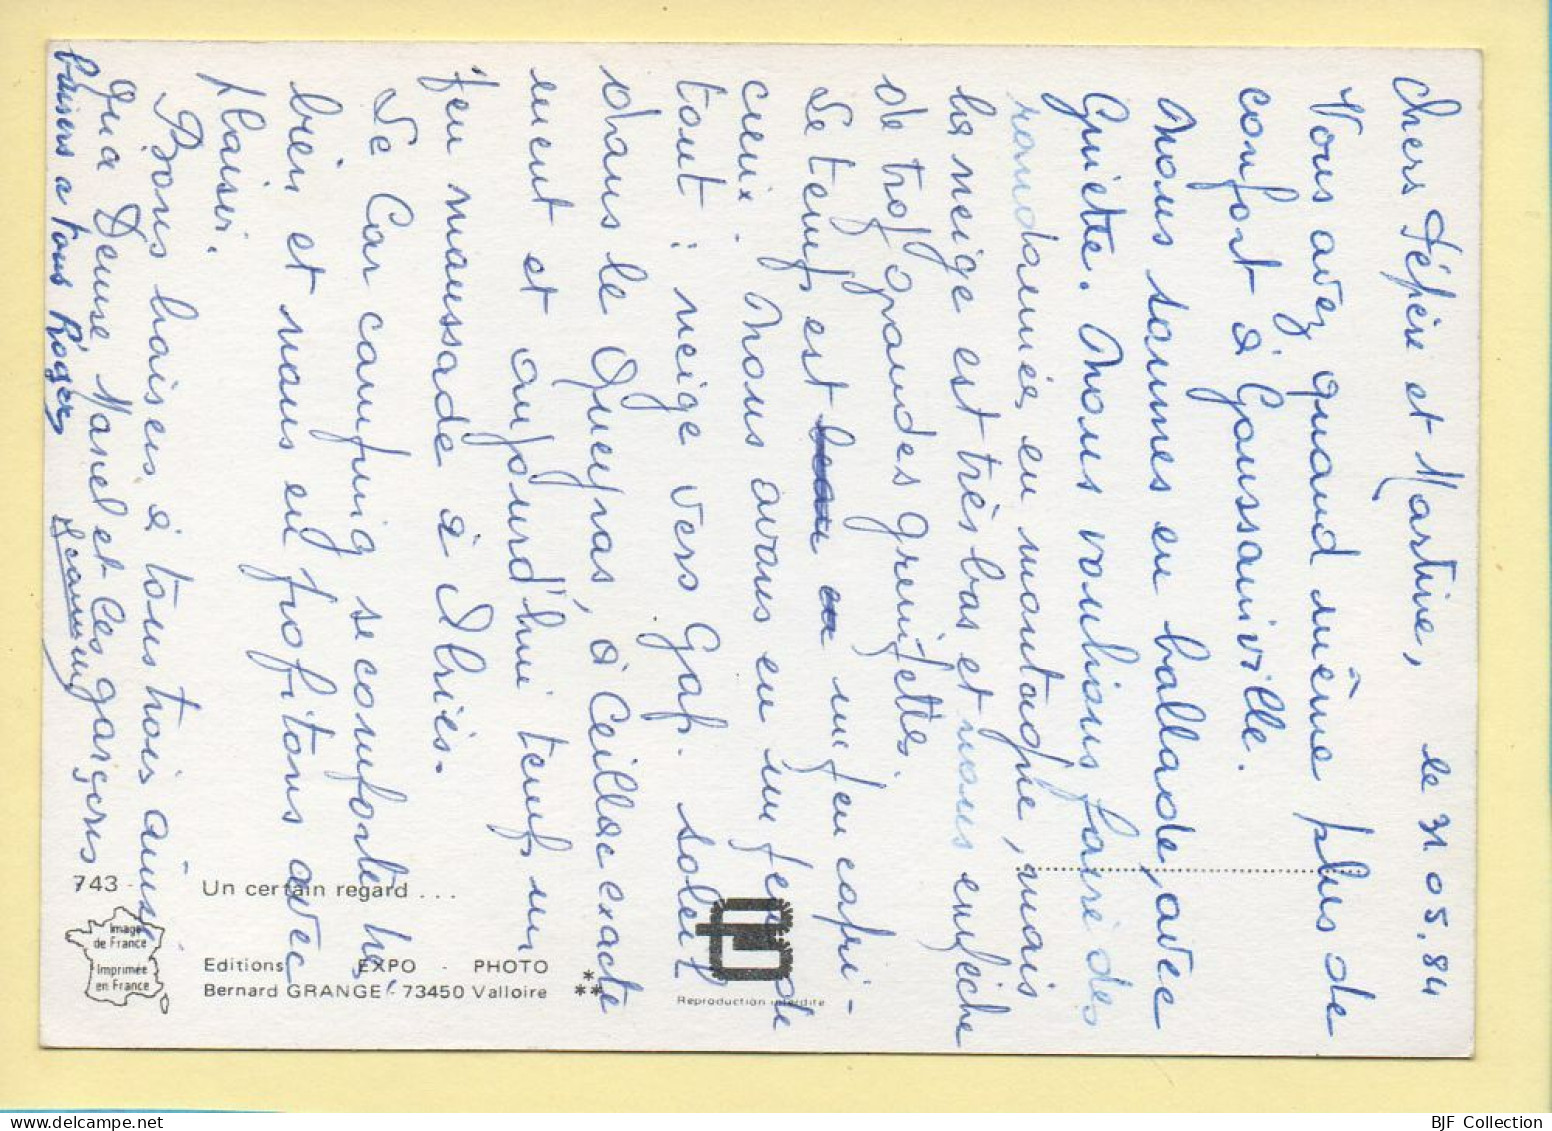 le 31.05.84
Chers Pépère et Martine,
Vous avez quand même plus de
confort à Goussainville.
Nous sommes en ballade, avec
Guiette. Nous voulions faire des
randonnées en montagne, mais
la neige est très bas et nous empêche
de trop grandes grimpettes.
Le temps est un peu capri-
cieux. Nous avons eu un peu de
tout : neige vers Gap. soleil
dans le Queyras, à Ceillac exacte
ment et aujourd'hui temps un
peu maussade à
Le Car camping se comporte très
bien et nous en profitons avec
plaisir.
Bons baisers à tous trois ainsi
qu'à Denise Marcel et les garçons
baisers a tous Roger
743
Un certain regard ...
Image
de France
Imprimée
en France
Editions EXPO - PHOTO
Bernard GRANGE - 73450 Valloire
Reproduction interdite
BJF Collection